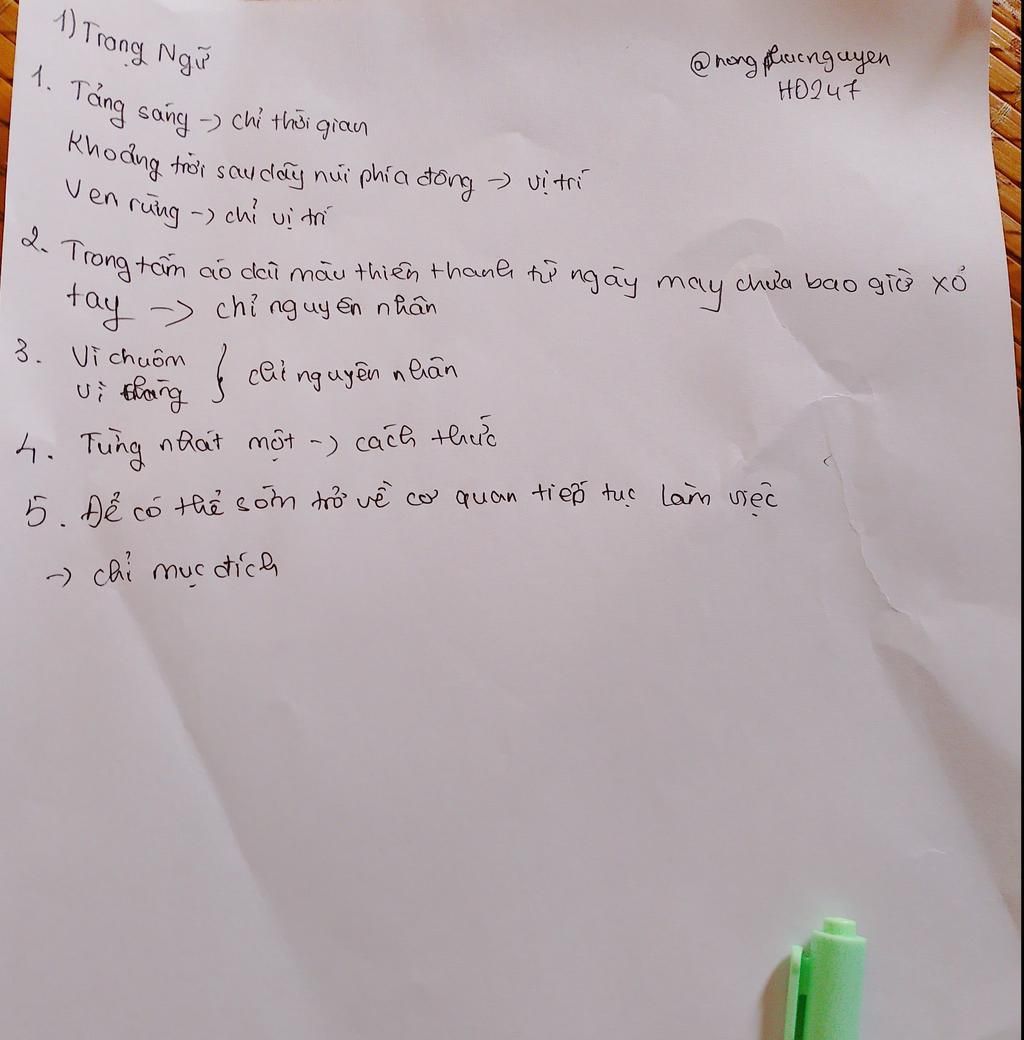 1) Trạng Ngữ
@nongphucnguyen
HĐ247
1. Tảng sáng -> chỉ thời gian
Khoảng trời sau dãy núi phía đông -> vị trí
Ven rừng -> chỉ vị trí
2. Trong tấm áo dài màu thiên thanh từ ngày may chưa bao giờ xỏ
tay -> chỉ nguyên nhân
3. Vì chuôm
vì } chỉ nguyên nhân
4. Từng nhát một -> cách thức
5. Để có thể sớm trở về cơ quan tiếp tục làm việc
-> chỉ mục đích